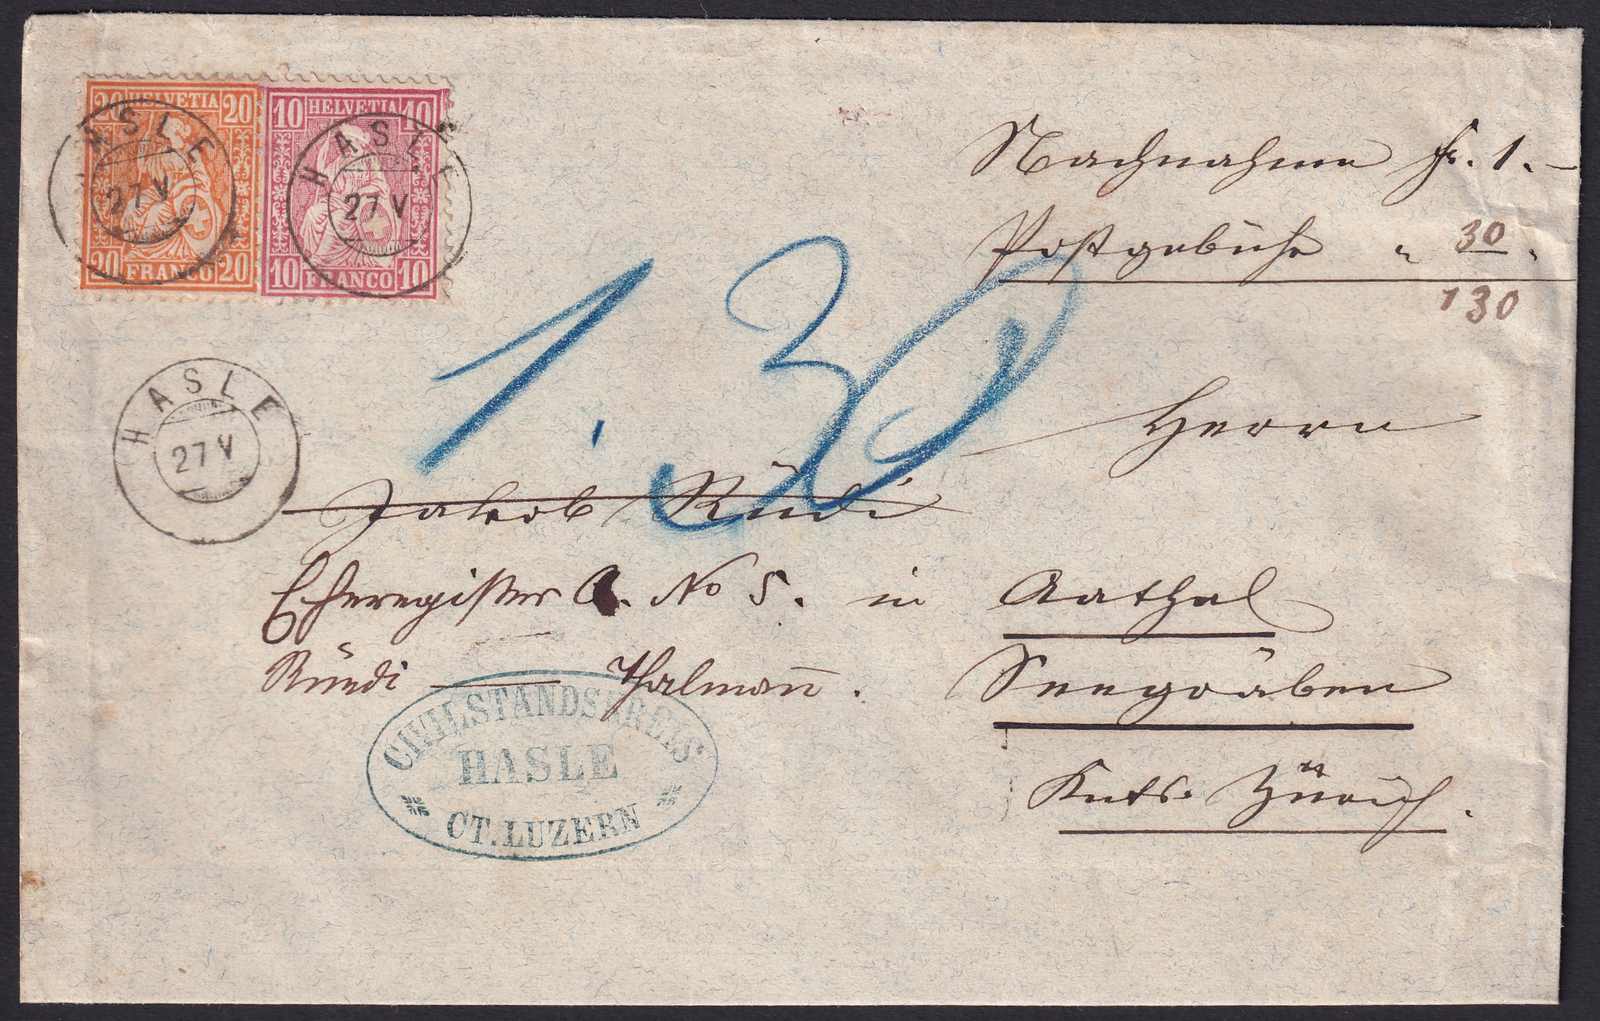 20 HELVETIA 20
20 FRANCO 20
10 HELVETIA 10
10 FRANCO 10
HASLE
27 V
HASLE
27 V
Nachnahme Fr. 1.–
Postgebühr " 30 "
1 30
1.30
HASLE
27 V
Herrn
Jakob Rüdi
Eheregister A. No 5. in Aathal
Rüedi — Thalmann. Seegräben
Knts. Zürich.
CIVILSTANDSKREIS
HASLE
CT. LUZERN